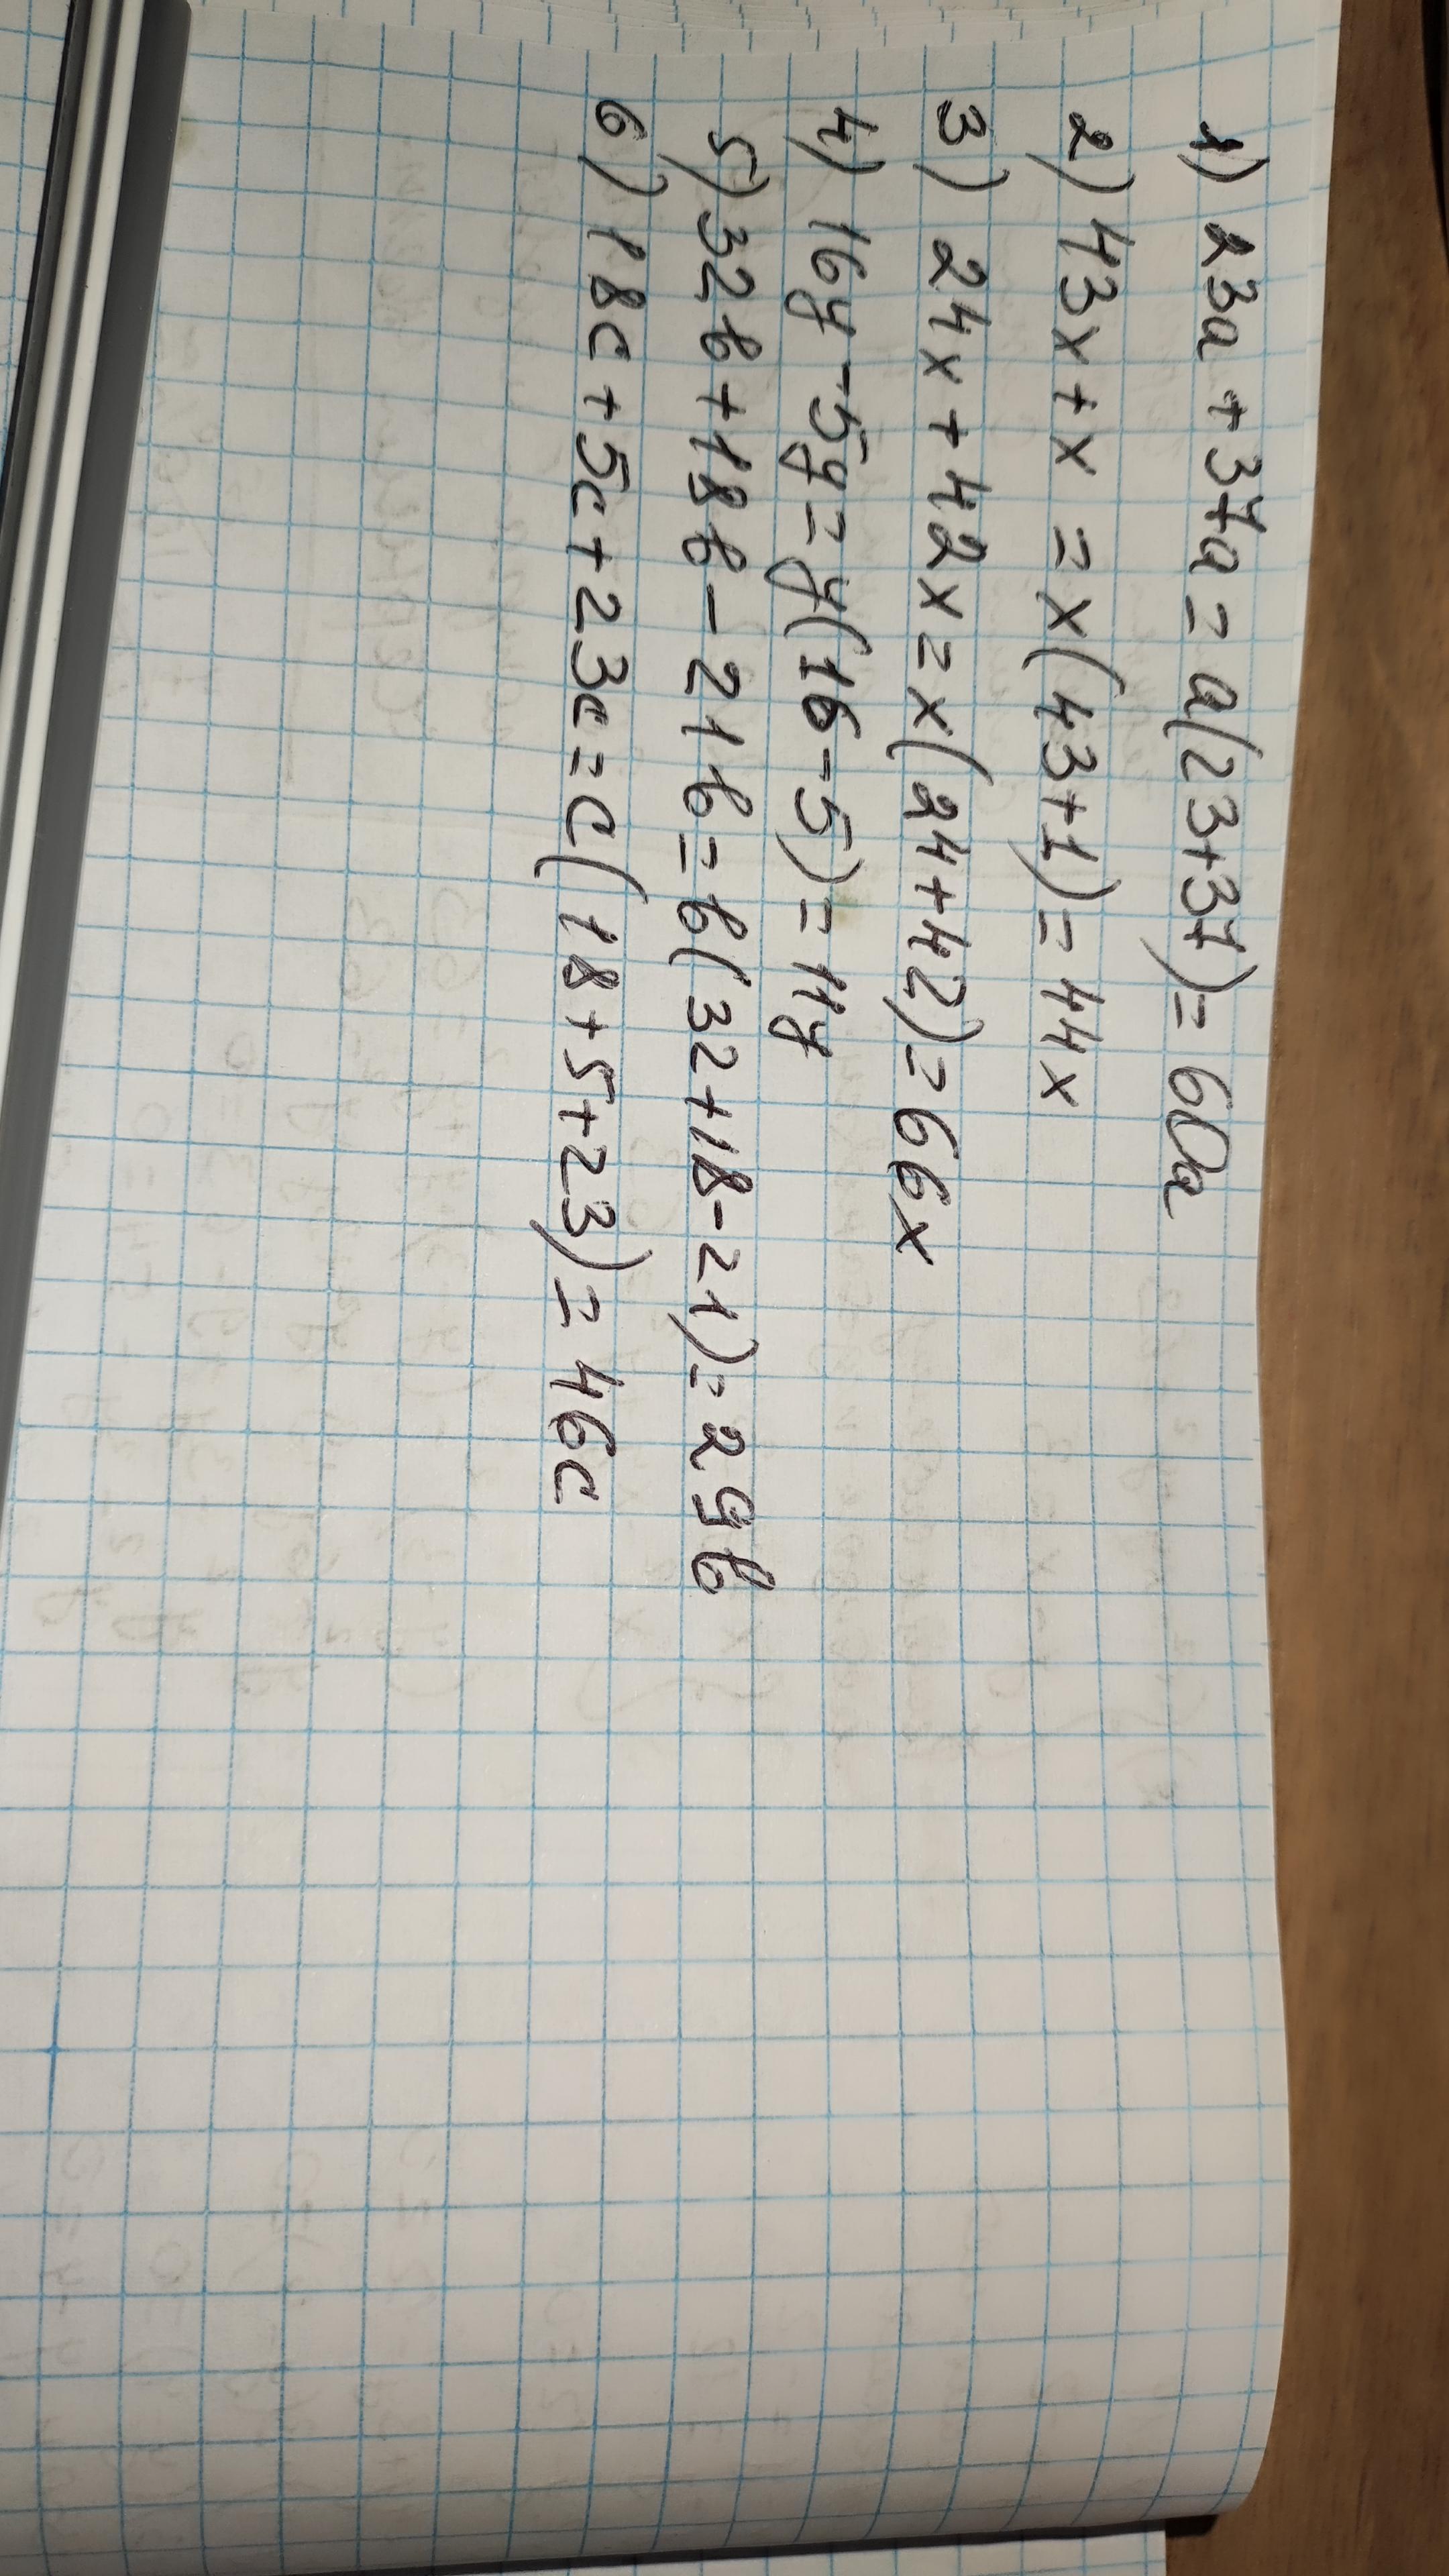 1) 23a + 37a = a(23+37) = 60a
2) 43x + x = x(43+1) = 44x
3) 24x + 42x = x(24+42) = 66x
4) 16y - 5y = y(16-5) = 11y
5) 32b + 18b - 21b = b(32+18-21) = 29b
6) 18c + 5c + 23c = c(18+5+23) = 46c